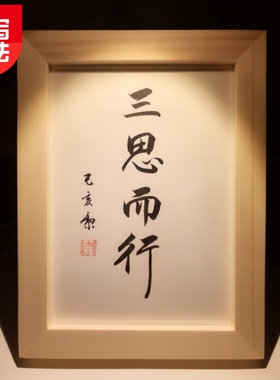 三思而行
己亥